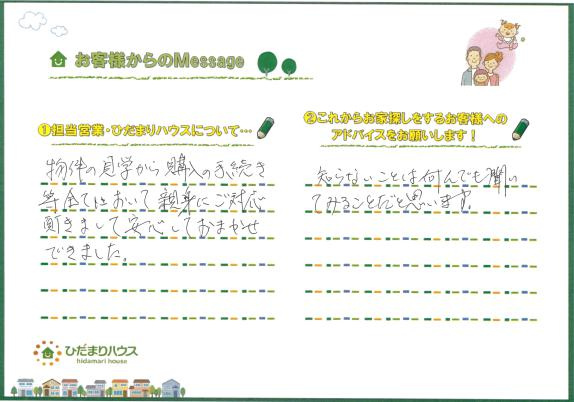 お客様からのMessage
①担当営業・ひだまりハウスについて…
物件の見学から購入の手続き
等全てにおいて親身にご対応
頂きまして安心しておまかせ
できました。
②これからお家探しをするお客様への
アドバイスをお願いします！
知らないことは何んでも聞い
てみることだと思います。
ひだまりハウス
hidamari house